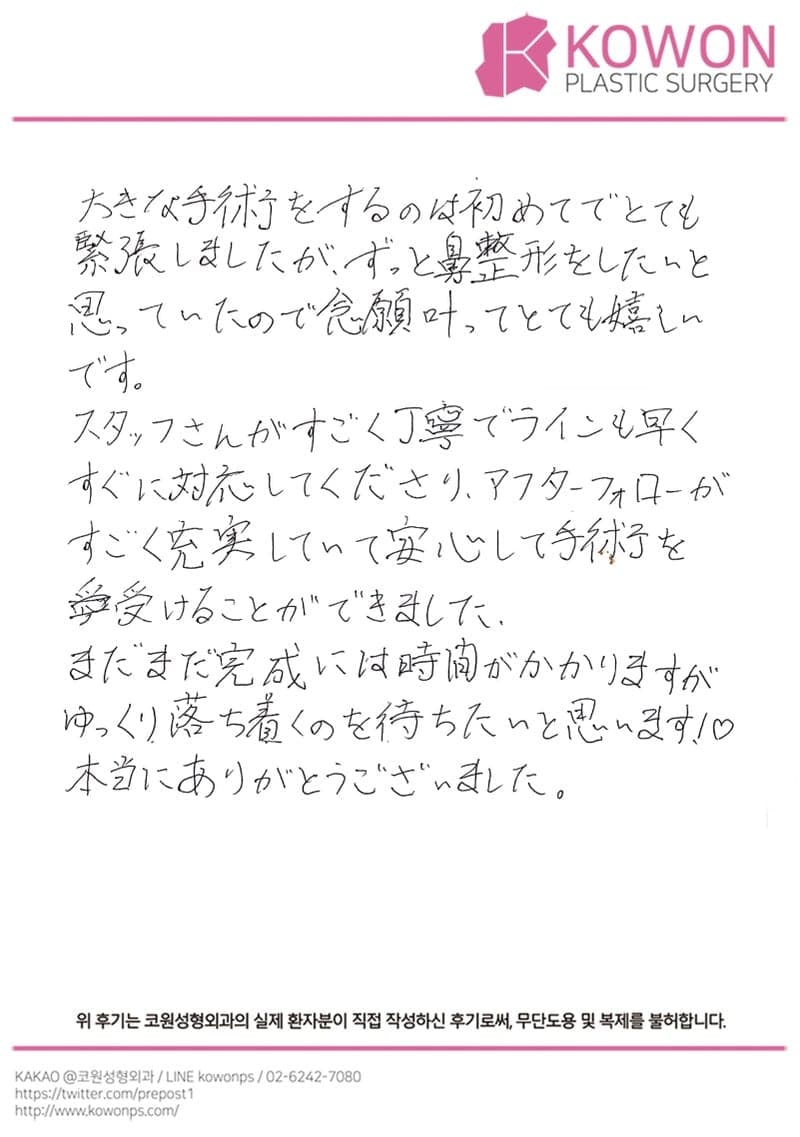 KOWON
PLASTIC SURGERY
大きな手術をするのは初めてでとても
緊張しましたが、ずっと鼻整形をしたいと
思っていたので念願叶ってとても嬉しい
です。
スタッフさんがすごく丁寧でラインも早く
すぐに対応してくださり、アフターフォローが
すごく充実していて安心して手術を
受けることができました、
まだまだ完成には時間がかかりますが
ゆっくり落ち着くのを待ちたいと思います!♡
本当にありがとうございました。
위 후기는 코원성형외과의 실제 환자분이 직접 작성하신 후기로써, 무단도용 및 복제를 불허합니다.
KAKAO @코원성형외과 / LINE kowonps / 02-6242-7080
https://twitter.com/prepost1
http://www.kowonps.com/